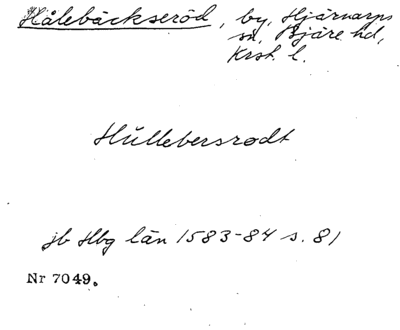 Hålebäckseröd, by, Hjärnarps
sn, Bjäre hd,
Krst. l.
Hullebersrodt
jb Hbg län 1583-84 s. 81
Nr 7049.